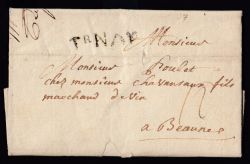 TRNAY
Monsieur
Monsieur Poulet
chez monsieur fils
marchand de vin
a Beaune